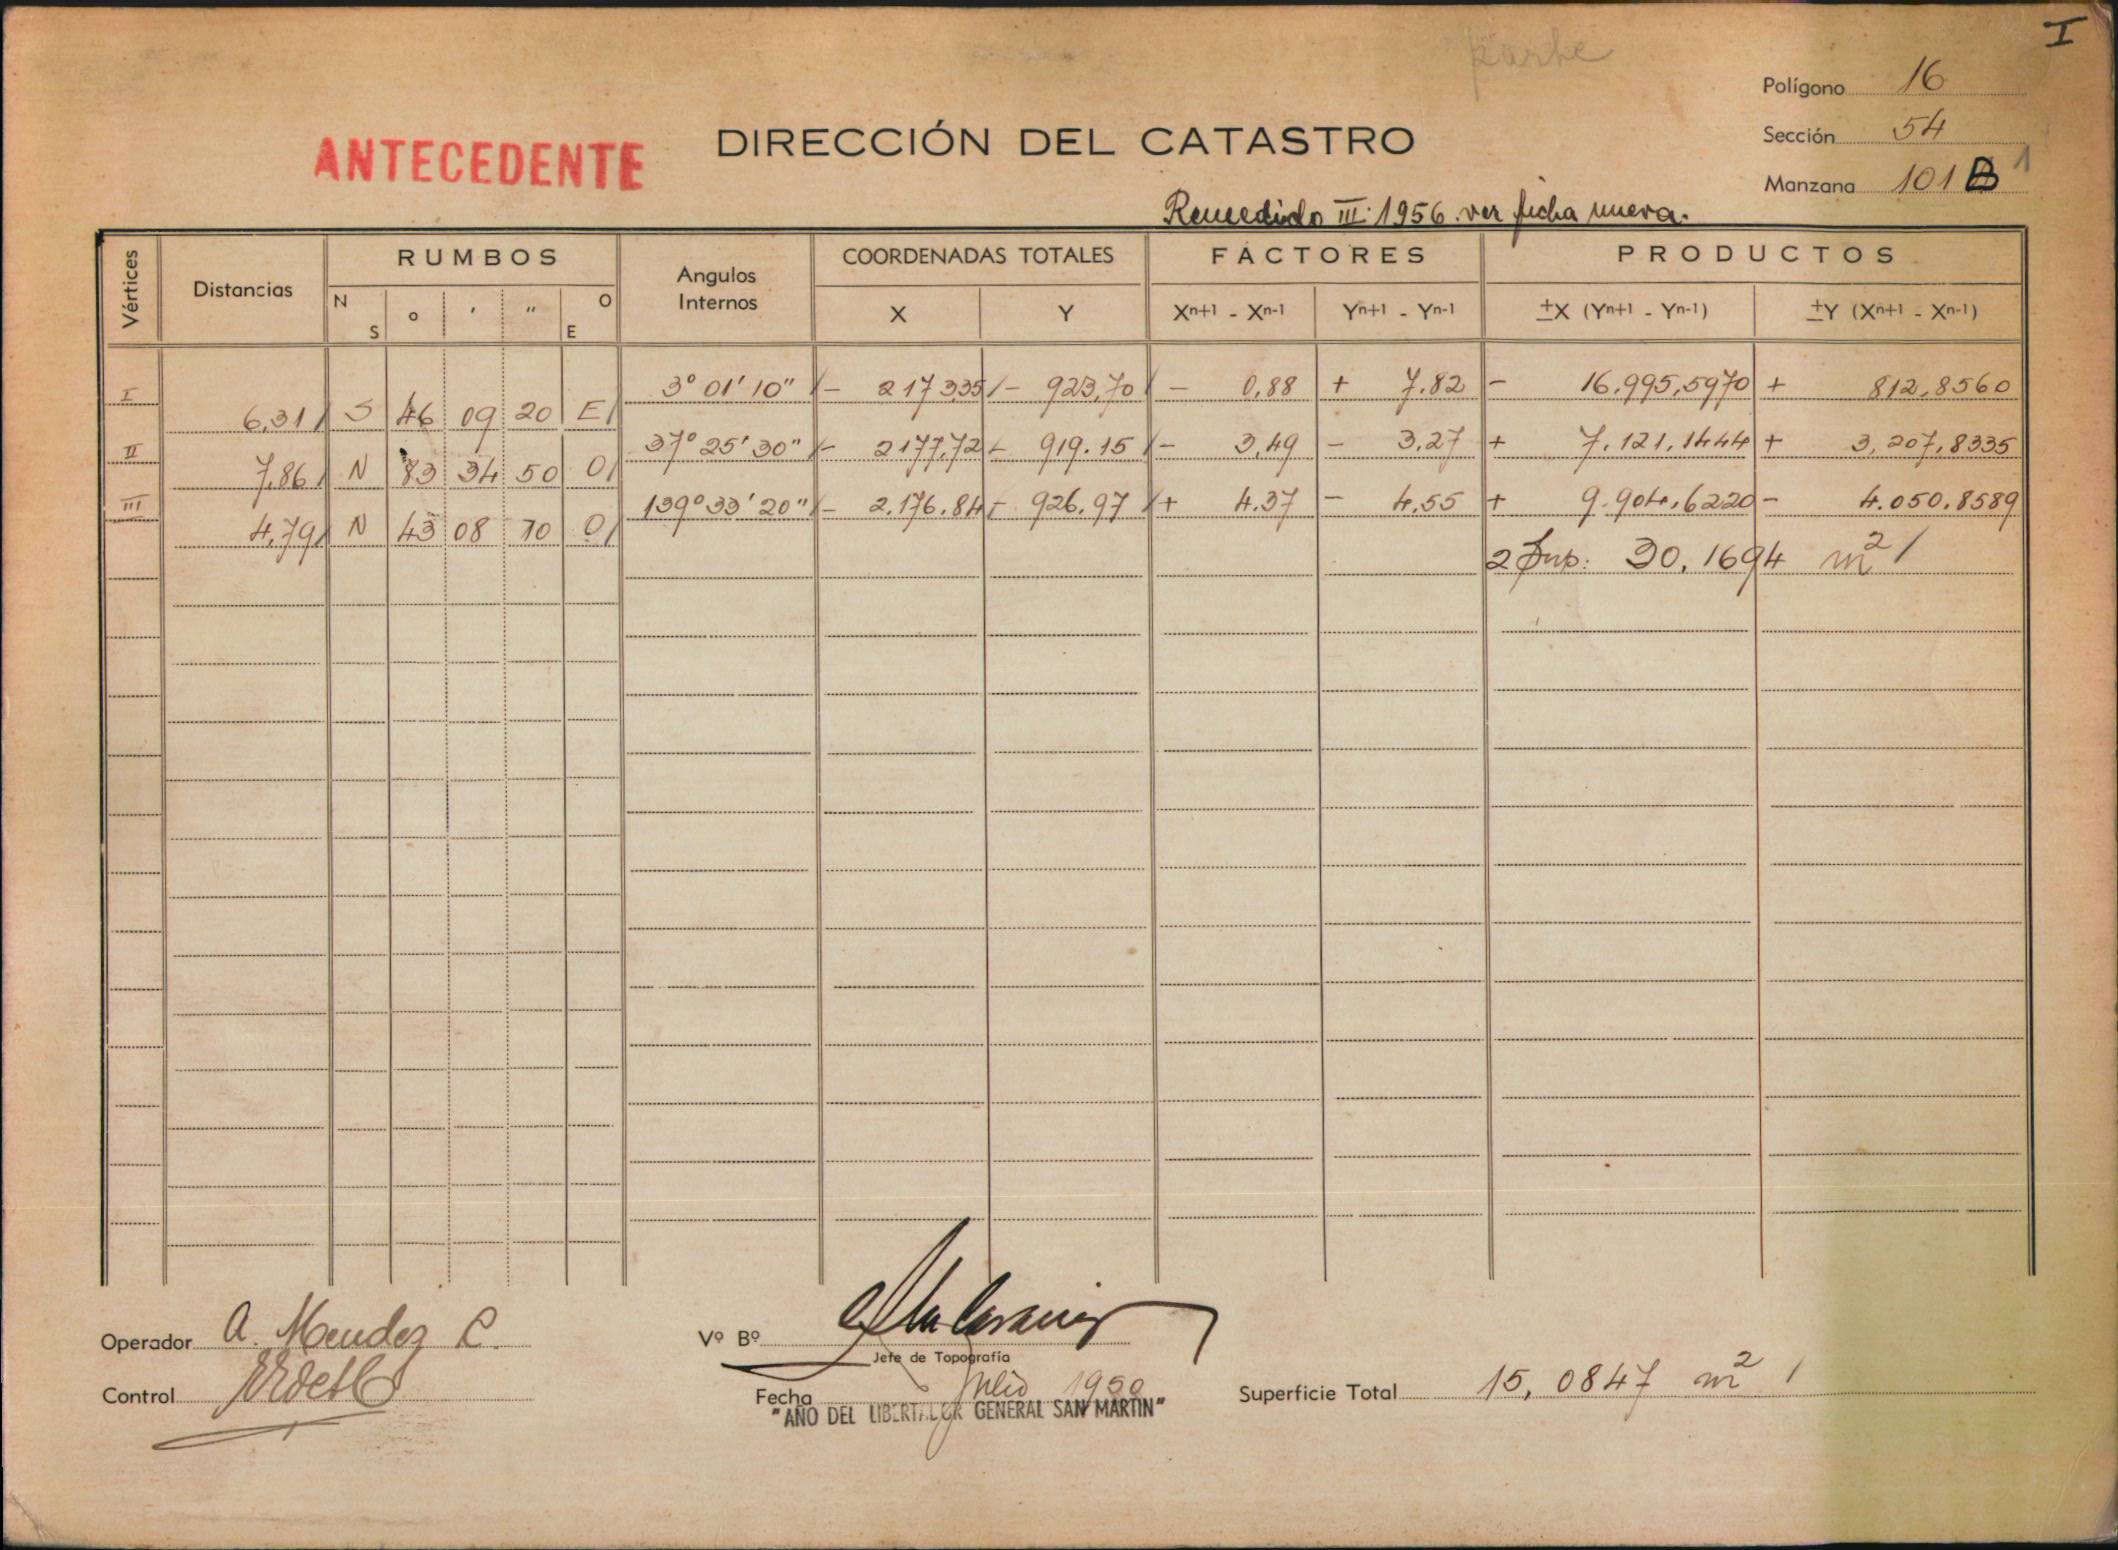 I
parte
Polígono 16
ANTECEDENTE
DIRECCIÓN DEL CATASTRO
Sección 54
Manzana 101 B 1
Remedido III. 1956. ver ficha nueva.
Vértices Distancias RUMBOS Angulos Internos COORDENADAS TOTALES FACTORES PRODUCTOS
N S o ' " O E X Y Xn+1 - Xn-1 Yn+1 - Yn-1 ±X (Yn+1 - Yn-1) ±Y (Xn+1 - Xn-1)
I 3° 01' 10" / - 217335 / - 923,70 / - 0,88 + 7.82 - 16.995,5970 + 812,8560
6,31 / S 46 09 20 E /
II 37° 25' 30" / - 2177,72 - 919.15 / - 3,49 - 3,27 + 7.121.1444 + 3,207,8335
7,86 / N 83 34 50 O /
III 139° 33' 20" / - 2.176.84 - 926,97 / + 4.37 - 4,55 + 9.904,6220 - 4.050.8589
4,79 / N 43 08 10 O /
2 Sup: 30,1694 m2 /
Operador A. Mendez C.
Vº Bº
Jefe de Topografía
Control
Fecha Julio 1950
"AÑO DEL LIBERTADOR GENERAL SAN MARTIN"
Superficie Total 15,0847 m2 /